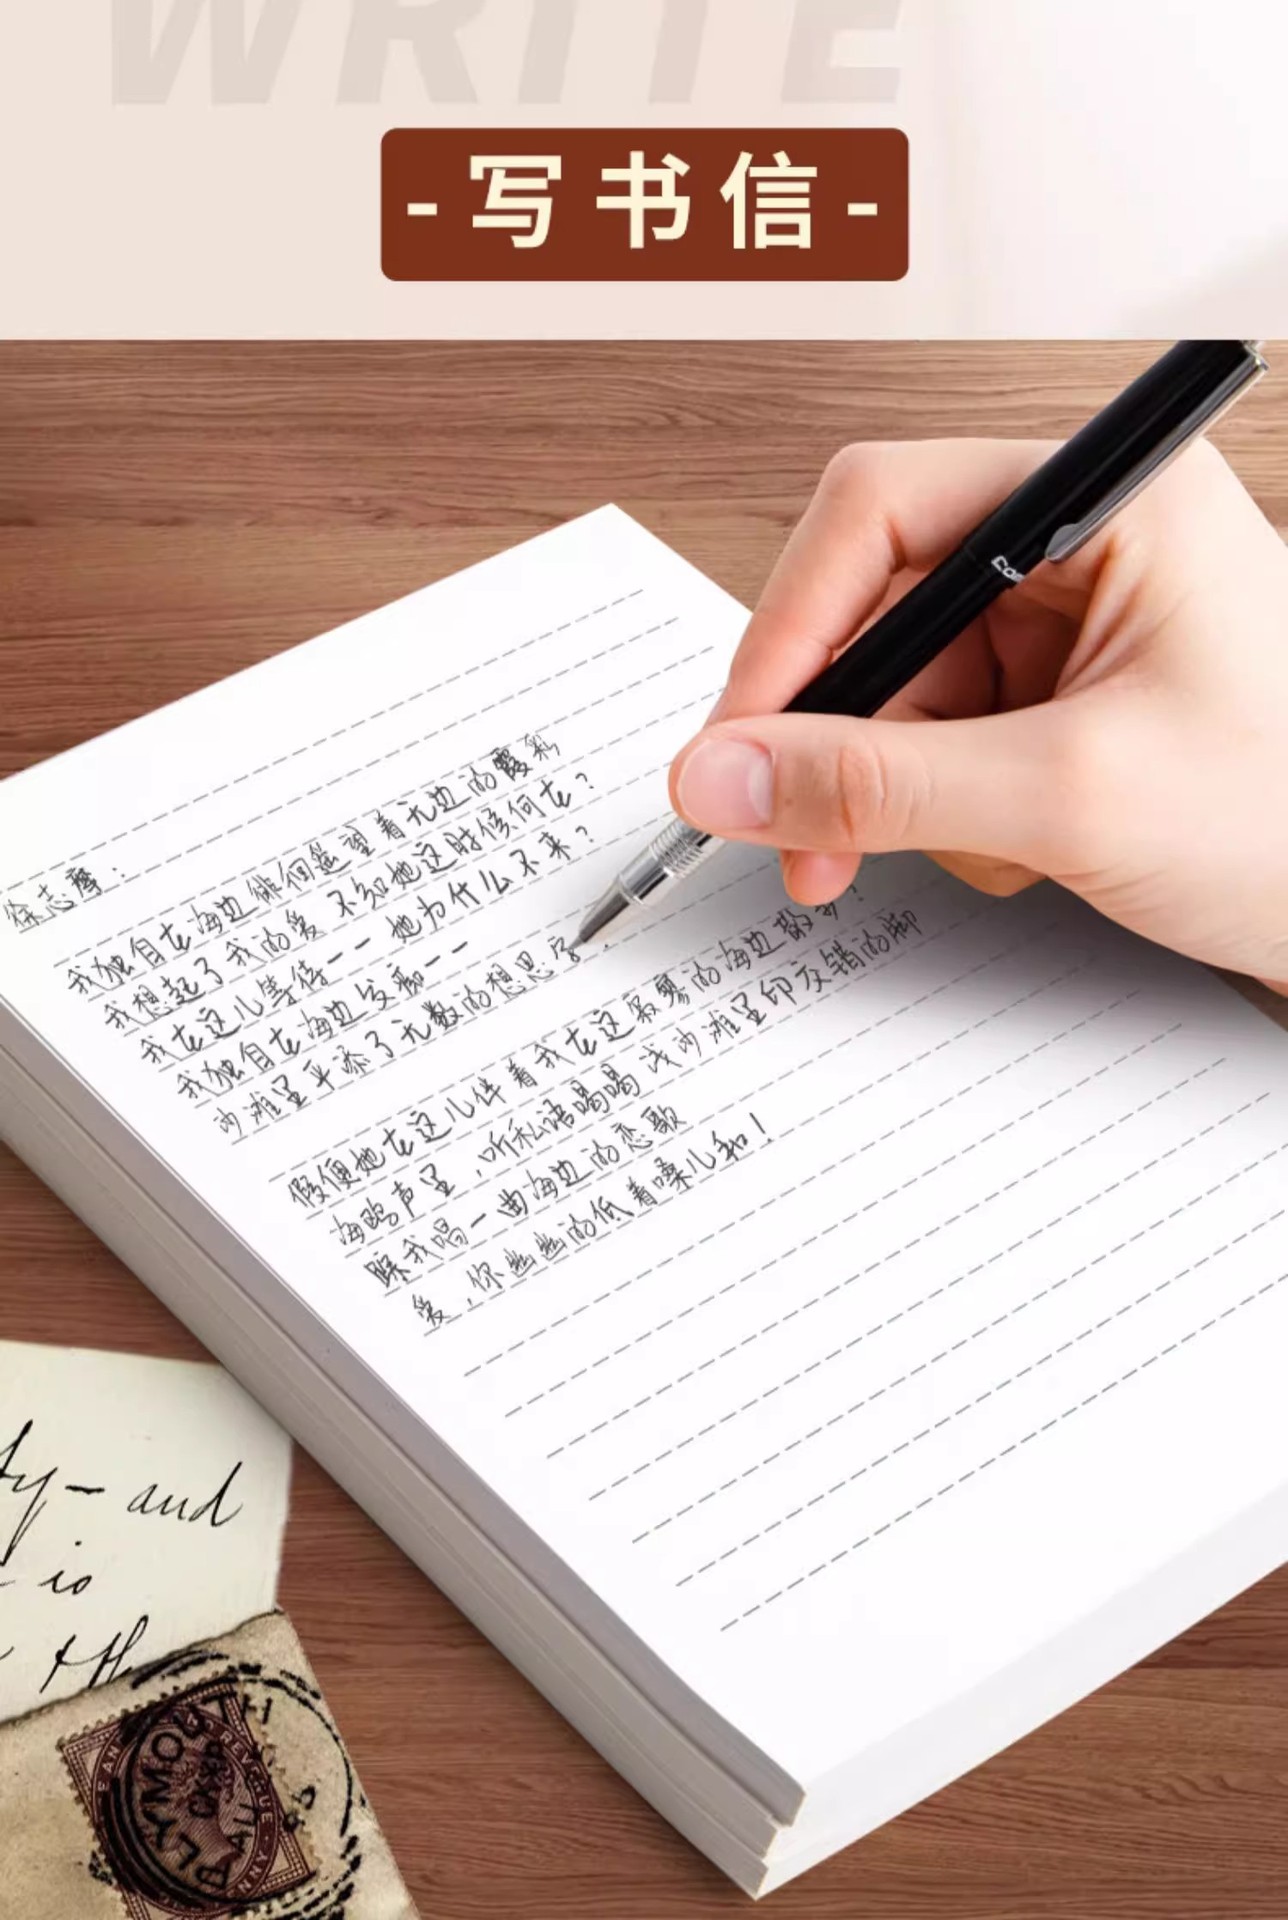 WRITE
-写书信-
徐志摩：
我独自在海边徘徊遥望着无边的霞彩
我想起了我的爱 不知她这时候何在？
我在这儿等待-- 她为什么不来？
我独自在海边发痴--
沙滩里平添了无数的想思字.
假便她在这儿伴着我在这寂寥的海边散步？
海鸥声里，听私语喁喁 浅沙滩里印交错的脚
踩我唱一曲海边的恋歌
爱，你幽幽的低着嗓儿和！
and
is
th
PLYMOUTH